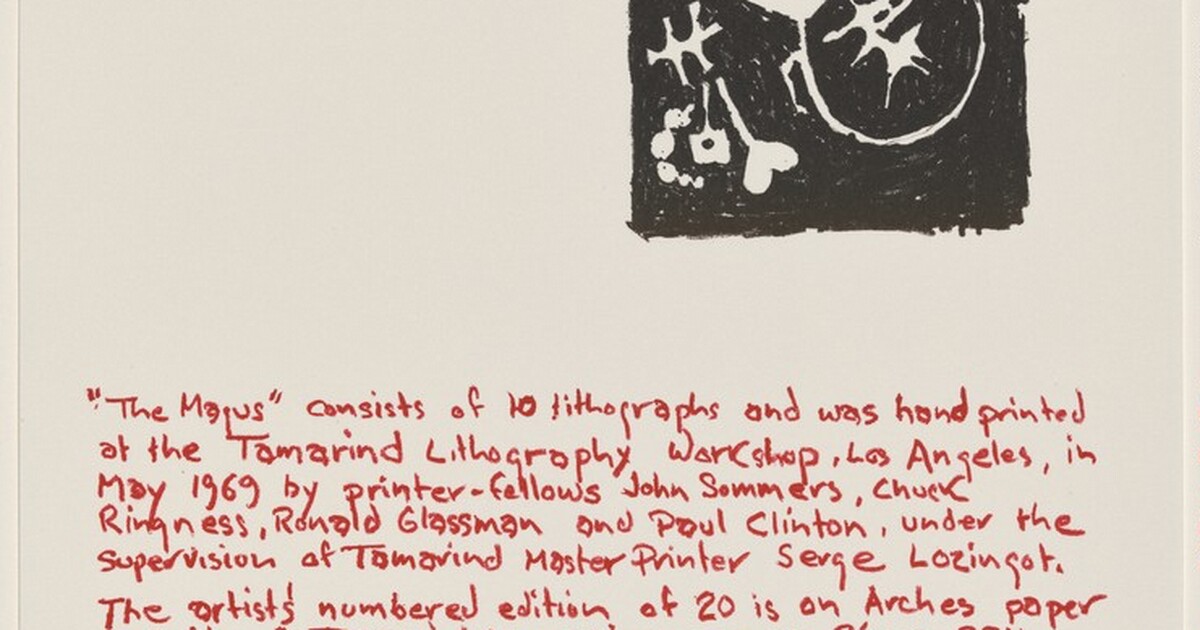 "The Magus" consists of 10 lithographs and was hand printed
at the Tamarind Lithography Workshop, Los Angeles, in
May 1969 by printer-fellows John Sommers, Chuck
Ringness, Ronald Glassman and Paul Clinton, under the
supervision of Tamarind Master Printer Serge Lozingot.
The artist's numbered edition of 20 is on Arches paper